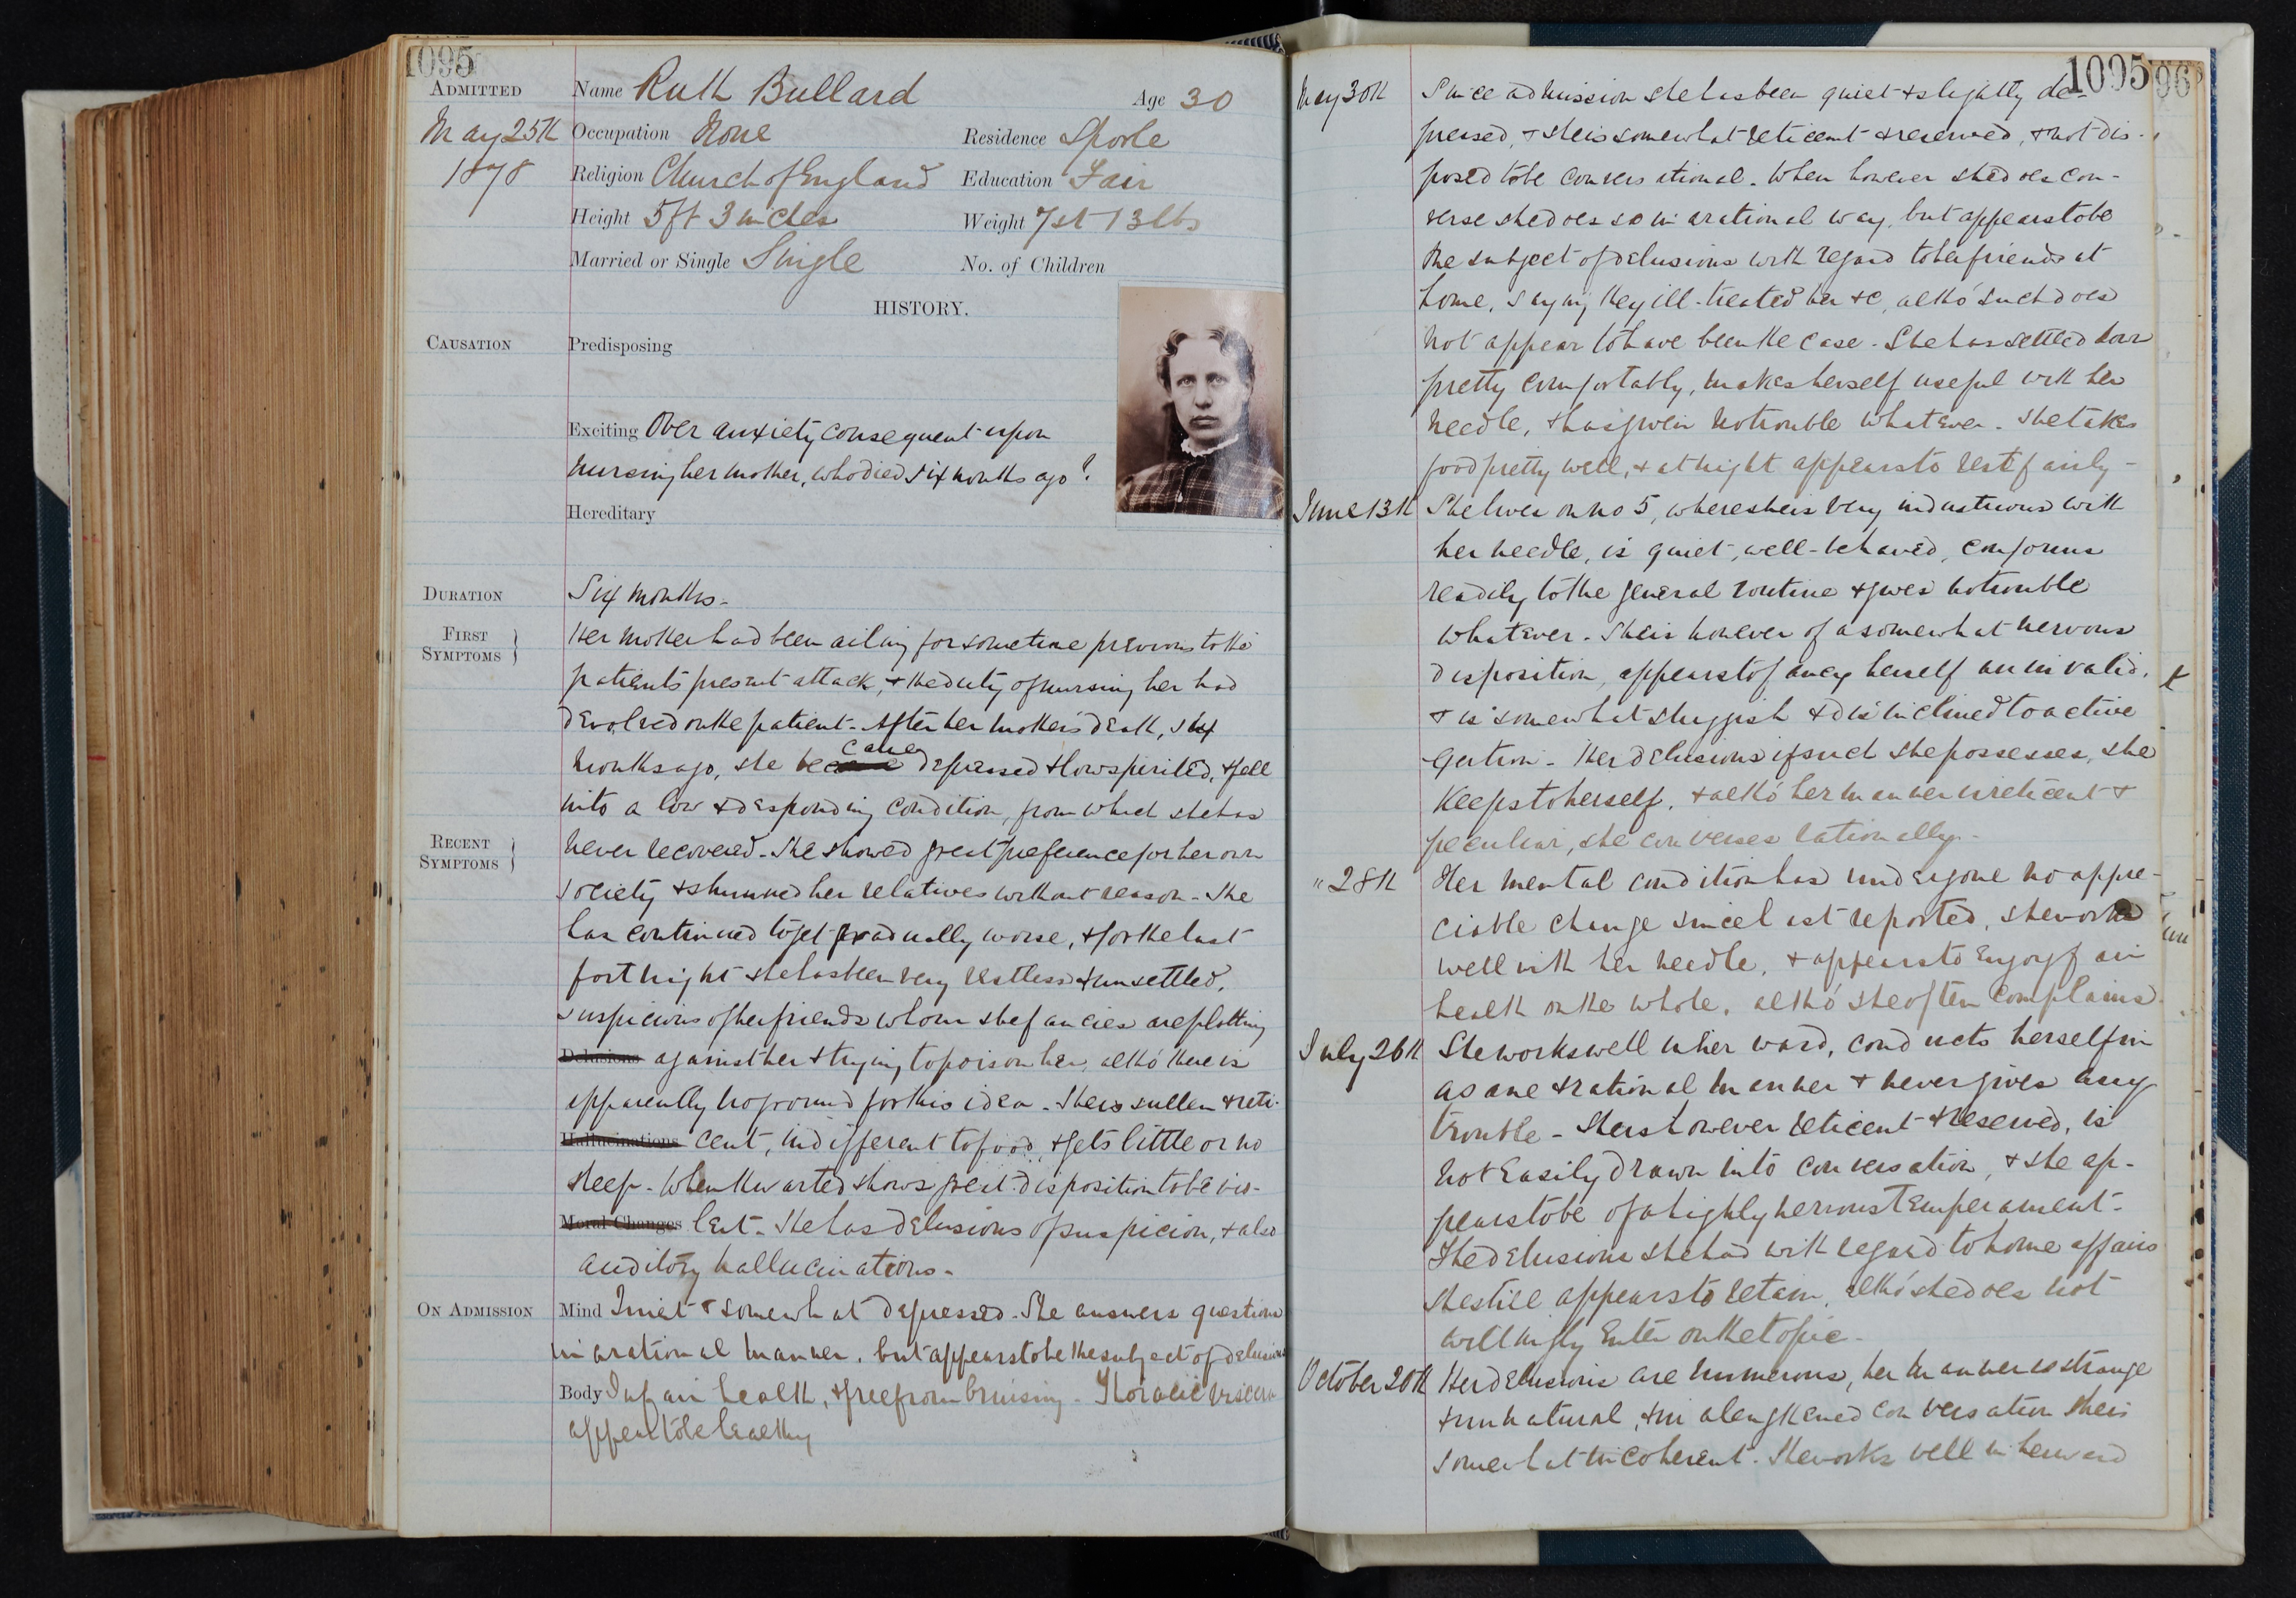 1095
ADMITTED Name Ruth Bullard Age 30
May 25th Occupation None Residence Sporle
1878 Religion Church of England Education Fair
Height 5 ft 3 inches Weight 7 st 13 lbs
Married or Single Single No. of Children
HISTORY.
CAUSATION Predisposing
Exciting Over anxiety consequent upon
nursing her mother, who died six months ago?
Hereditary
DURATION Six months -
FIRST SYMPTOMS Her mother had been ailing for sometime previous to the
patient's present attack, & the duty of nursing her had
devolved on the patient - After her mother's death, six
months ago, she became depressed & lowspirited, & fell
into a low & desponding condition, from which she has
RECENT SYMPTOMS never recovered - She showed great preference for her own
society & shunned her relatives without reason - She
has continued to get gradually worse, & for the last
fortnight she has been very restless & unsettled,
suspicious of her friends whom she fancies are plotting
Delusions against her & trying to poison her, altho' there is
apparently no ground for this idea - She is sullen & reti-
Hallucinations cent, indifferent to food, & gets little or no
sleep - When thwarted shows great disposition to be vio-
Moral Changes lent - She has delusions of suspicion, & also
auditory hallucinations -
ON ADMISSION Mind Quiet & somewhat depressed - She answers questions
in a rational manner, but appears to be the subject of delusions
Body In fair health, & free from bruising - Thoracic viscera
appear to be healthy
1095 96
May 30th Since admission she has been quiet & slightly de-
pressed, & she is somewhat reticent & reserved, & not dis-
posed to be conversational. When however she does con-
verse she does so in a rational way, but appears to be
the subject of delusions with regard to her friends at
home, saying they ill-treated her &c, altho' such does
not appear to have been the case - She has settled down
pretty comfortably, makes herself useful with her
needle, & has given no trouble whatever - She takes
food pretty well, & at night appears to rest fairly -
June 13th She lives on no 5, where she is very industrious with
her needle, is quiet, well-behaved, conforms
readily to the general routine & gives no trouble
whatever - She is however of a somewhat nervous
disposition, appears to fancy herself an invalid,
& is somewhat sluggish & disinclined to active
exertion - Her delusions if such she possesses, she
keeps to herself, & altho' her manner is reticent &
peculiar, she converses rationally -
" 28th Her mental condition has undergone no appre-
ciable change since last reported, she works
well with her needle, & appears to enjoy fair
health on the whole, altho' she often complains.
July 26th She works well in her ward, conducts herself in
a sane & rational manner & never gives any
trouble - She is however reticent & reserved, is
not easily drawn into conversation, & she ap-
pears to be of a highly nervous temperament -
The delusions she had with regard to home affairs
she still appears to retain, altho' she does not
willingly enter on the topic -
October 20th Her delusions are numerous, her manner is strange
& unnatural, & in a lengthened conversation she is
somewhat incoherent - She works well in her ward